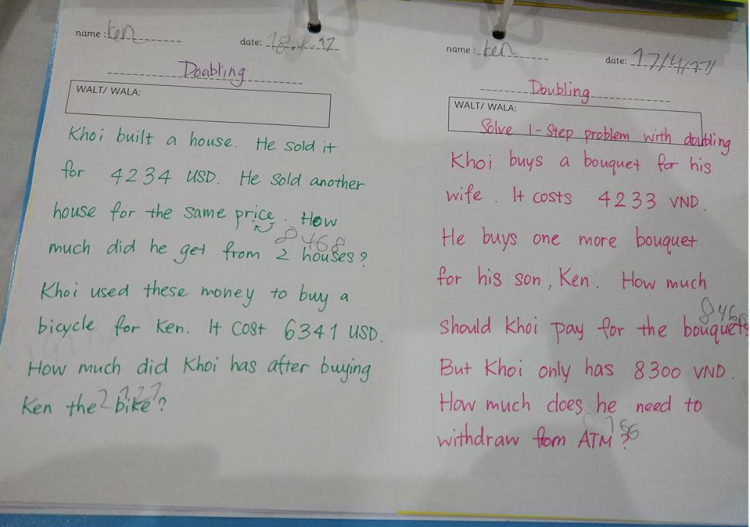 name : Ken
date: 18.4.17
Doubling
WALT/ WALA:
Khoi built a house. He sold it
for 4234 USD. He sold another
house for the same price. How
8468
much did he get from 2 houses?
Khoi used these money to buy a
bicycle for Ken. It cost 6341 USD.
How much did Khoi has after buying
Ken the bike?
name : Ken
date:
Doubling
WALT/ WALA:
Solve 1-Step problem with doubling
Khoi buys a bouquet for his
wife. It costs 4233 VND.
He buys one more bouquet
for his son, Ken. How much
should Khoi pay for the bouquets
But Khoi only has 8300 VND.
How much does he need to
withdraw from ATM?